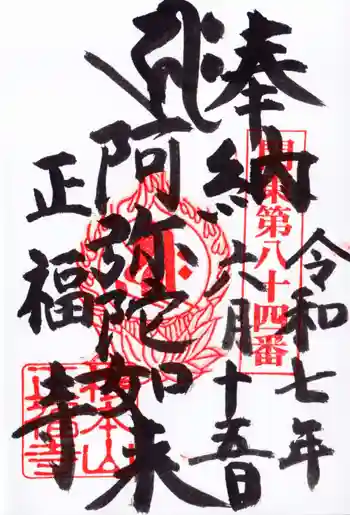 奉納
令和七年
六月十五日
関東第八十四番
阿弥陀如来
正福寺